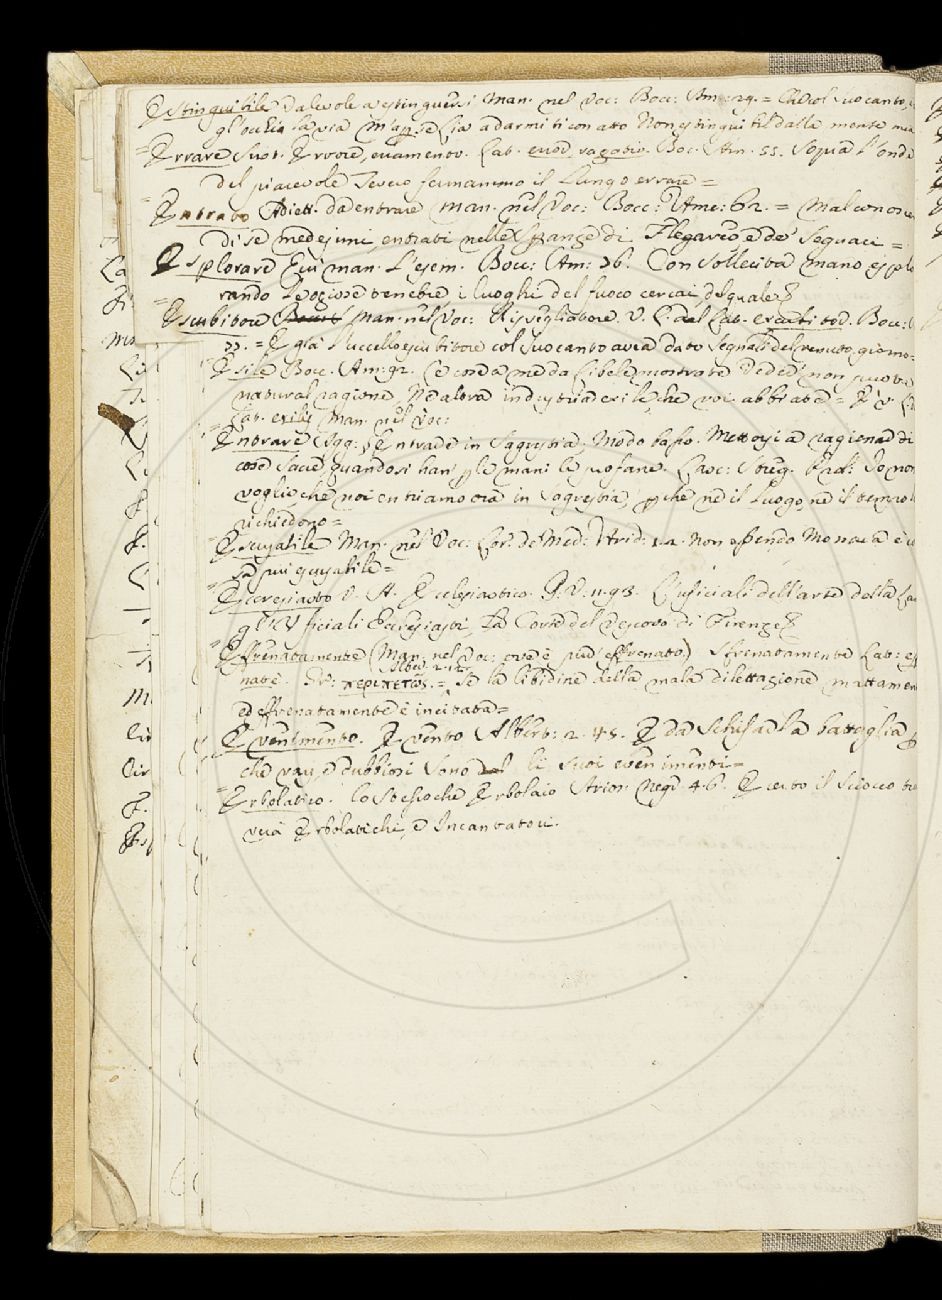 Estinguibile Valevole a estinguersi Man. nel Voc: Bocc: Am: 29. = Che col suo canto,
gl'occhi la via m'apre sia a darmiti con atto Non estinguibil dalla mente mia
= Errare Sust. Errore, erramento. Lat. error, vagatio. Boc: Am. 55. Sopra l'onde
del piacevole Tevero fermammo il Lungo errare =
= Entrato Adiett. da entrare Man. nel Voc: Bocc: Ame: 62. = Mal conoscen
di se medesimi entrati nelle stanze di Flegareo e de' Seguaci =
Esplorare Evvi man. L'esem. Bocc: Am: 36. Con Sollecita mano esplo
rando Logiose tenebre i luoghi del fuoco cercai del quale
= Escubitore Man. nel Voc: Risvegliatore V. L. dal Lat. excubitor. Bocc:
55. = E già l'uccello escubitore col suo canto avea dato segnali del venuto giorno =
= Esile Bocc. Am: 92. Se corda me da Cibele mostrata Vedea non puote
natural ragione, Ne altra industria esile, che voi abbiate = E v.
Lat. exilis Man. nel Voc:
= Entrare Agg: Entrare in Sagrestia Modo basso. Mettersi a ragionar di
cose sacre quandosi han p le mani le profane. Lasc: Streg. Prol: Io non
voglio che noi entriamo ora in Sagrestia, p che nè il luogo, nè il tempo lo
richiedono =
= Escusabile Man. nel Voc: Lor. de Med: Arid: 1.2. Non essendo Monaca è
sa più scusabile =
= Ecclesiasto V. A. Ecclesiastico. G. V. 11. 93. L'uficiali dell'arte della La
gl'Ufficiali Ecclesiasti, La Corte del Vescovo di Firenze
Effrenatamente (Man. nel Voc: ove è pur effrenato) Sfrenatamente Lat: ef
Alber. 2. 42.
nate. Gr: περιπετῶς. = Se la libidine della mala dilettazione mattamen
ed effrenatamente è incitata =
= Evenimento. Evento Albert: 2. 48. E da Schifar la battaglia p
che vari, e dubbiosi sono li suoi evenimenti =
= Erbolatico. lo stesso che Erbolaio Arios. Negr. 4. 6. E certo il Sciocco
Erbolatiche, e Incantatori.